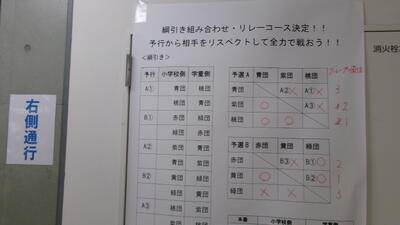 綱引き組み合わせ・リレーコース決定！！
予行から相手をリスペクトして全力で戦おう！！
＜綱引き＞
予行 小学校側 学童側
A① 青団 桃団
桃団 青団
B① 赤団 緑団
緑団 赤団
A② 紫団 青団
青団 紫団
B② 黄団 緑団
緑団 黄団
A③ 桃団 紫団
紫団 桃団
予選A 青団 紫団 桃団
青団 A②× A①× 3
紫団 ○ A③× 2
桃団 ○ ○ 1
予選B 赤団 黄団 緑団
赤団 B③× B①○ 2
黄団 ○ B②○ 1
緑団 × × 3
小学校側
右側通行
消火栓